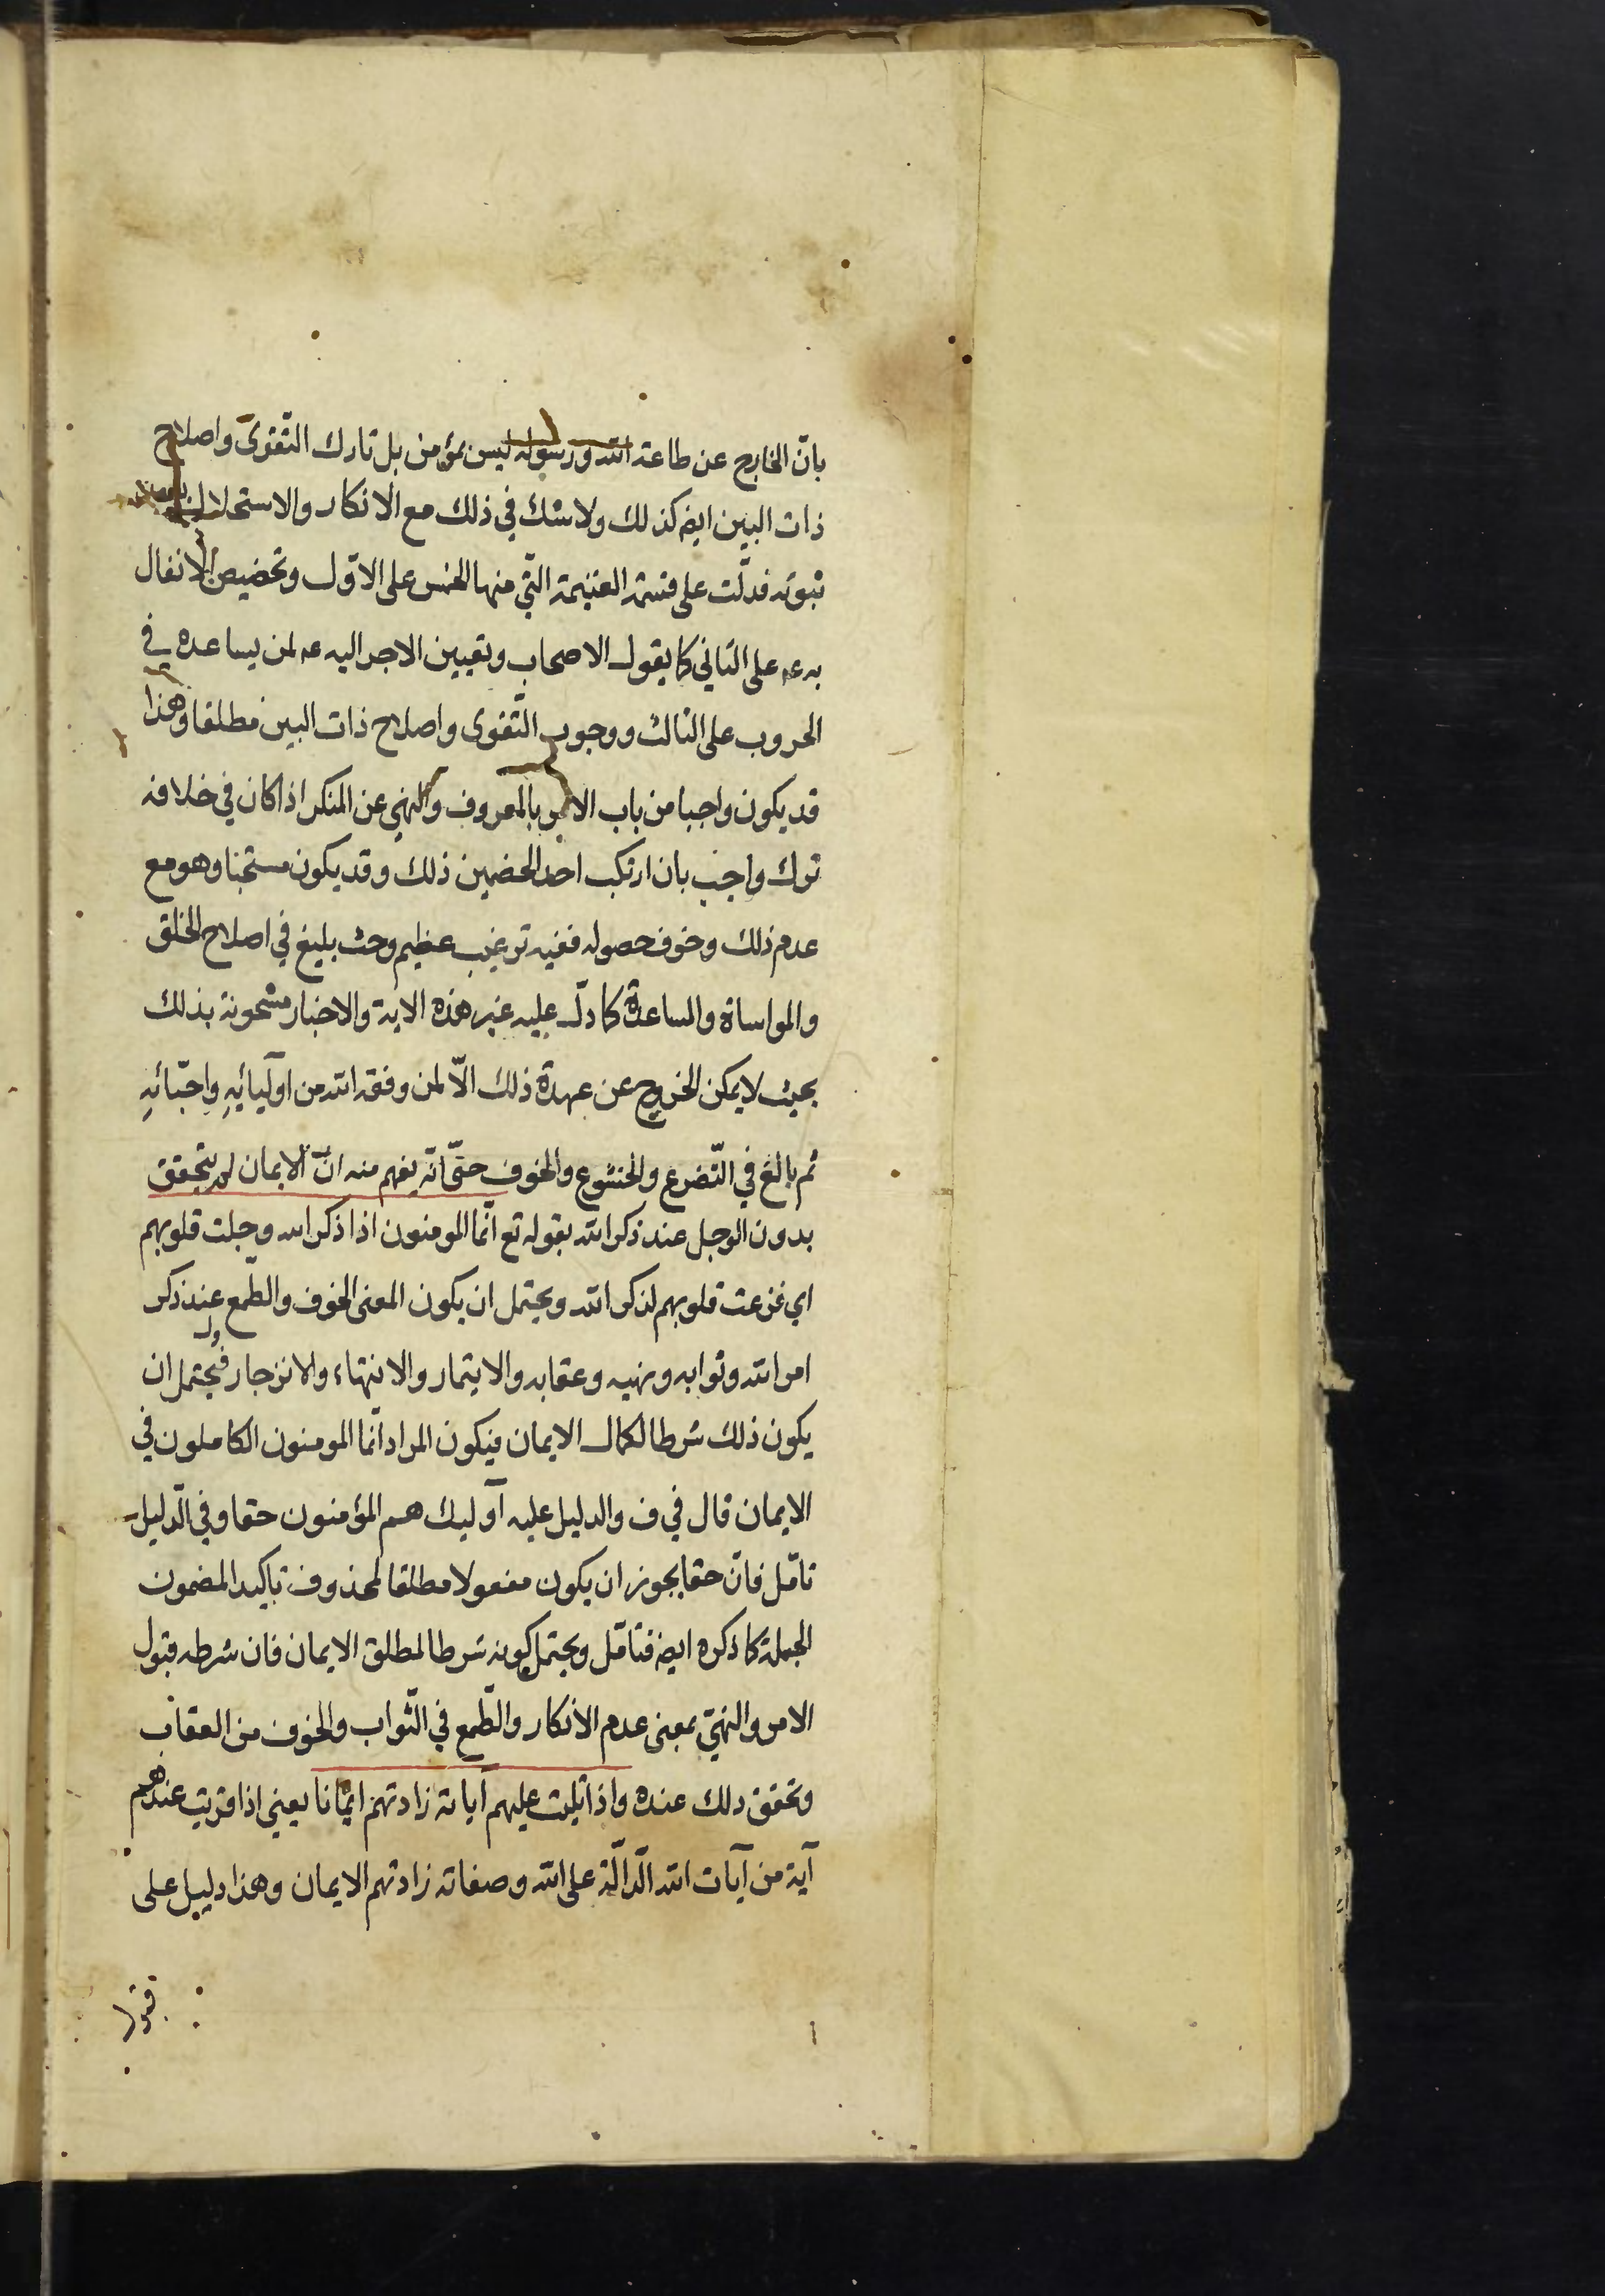 بانّ الخارج عن طاعة الله ورسوله ليس بمؤمن بل تارك التّقوى واصلاح
ذات البين ايضه كذلك ولا شك في ذلك مع الانكار والاستحلال بعد
ثبوته فدلّت على قسمة الغنيمة الّتي منها الخمس على الاوّل وتخصيص الانفال
به عه على الثاني كما يقول الاصحاب وتعيين الاجر اليه عه لمن يساعده في
الحروب على الثالث ووجوب التّقوى واصلاح ذات البين مطلقا وهذا
قد يكون واجبا من باب الامر بالمعروف والنهي عن المنكر اذا كان في خلافه
ترك واجب بان ارتكب احد الخصمين ذلك وقد يكون مستحبا وهو مع
عدم ذلك وخوف حصوله ففيه ترغيب عظيم وحث بليغ في اصلاح الخلق
والمواساة والمساعدة كما دلّ عليه غير هذه الاية والاخبار مشحونة بذلك
بحيث لا يمكن الخروج عن عهدة ذلك الّا لمن وفقه الله من اوليائه واحبّائه
ثم بالغ في التّضرع والخشوع والخوف حتّى انّه يفهم منه انّ الايمان لم يتحقق
بدون الوجل عند ذكر الله بقوله تع انّما المومنون اذا ذكر الله وجلت قلوبهم
اي فزعت قلوبهم لذكر الله ويحتمل ان يكون المعنى الخوف والطّمع عند ذكر
امر الله وثوابه ونهيه وعقابه والايتمار والانتهاء والانزجار فيحتمل ان
يكون ذلك شرطا لكمال الايمان فيكون المراد انّما المومنون الكاملون في
الايمان قال في ف والدليل عليه اوليك هم المؤمنون حقا وفي الدّليل
تامّل فانّ حقا يجوز ان يكون مفعولا مطلقا لمحذوف تاكيدا لمضمون
الجملة كما ذكره ايضه فتامّل ويحتمل كونه شرطا لمطلق الايمان فان شرطه قبول
الامر والنهيّ بمعنى عدم الانكار والطّمع في الثّواب والخوف من العقاب
وتحقق ذلك عنده واذا تليت عليهم آياته زادتهم ايمانا يعني اذا قريت عندهم
آية من آيات الله الدّالّة على الله وصفاته زادتهم الايمان وهذا دليل على
قبول